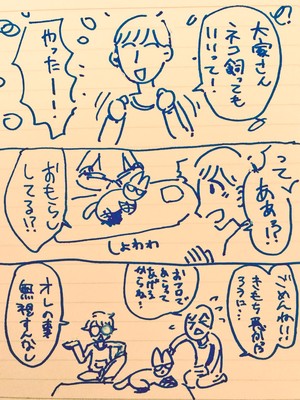 大家さん
ネコ飼っても
いいって!
やったーー!
って
ああ!?
おもらし
してる!?
しょわわ
ごめんねぃ
きもち悪かっ
たろうに
おフロで
あらって
あげる
からね
オレの事
無視すんなし